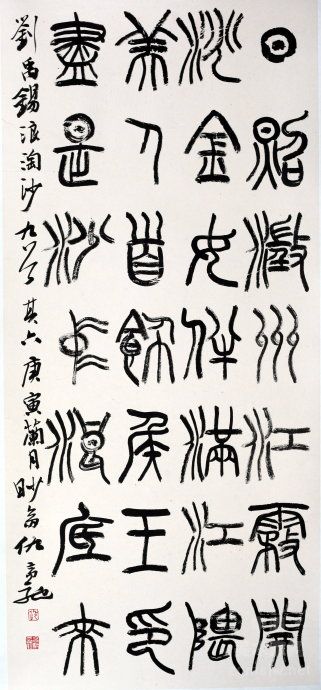 日照澂洲江霧開
沙金女伴滿江隈
美人首飾侯王印
盡是沙中浪底來
劉禹錫浪淘沙九首其六庚寅蘭月仇高馳